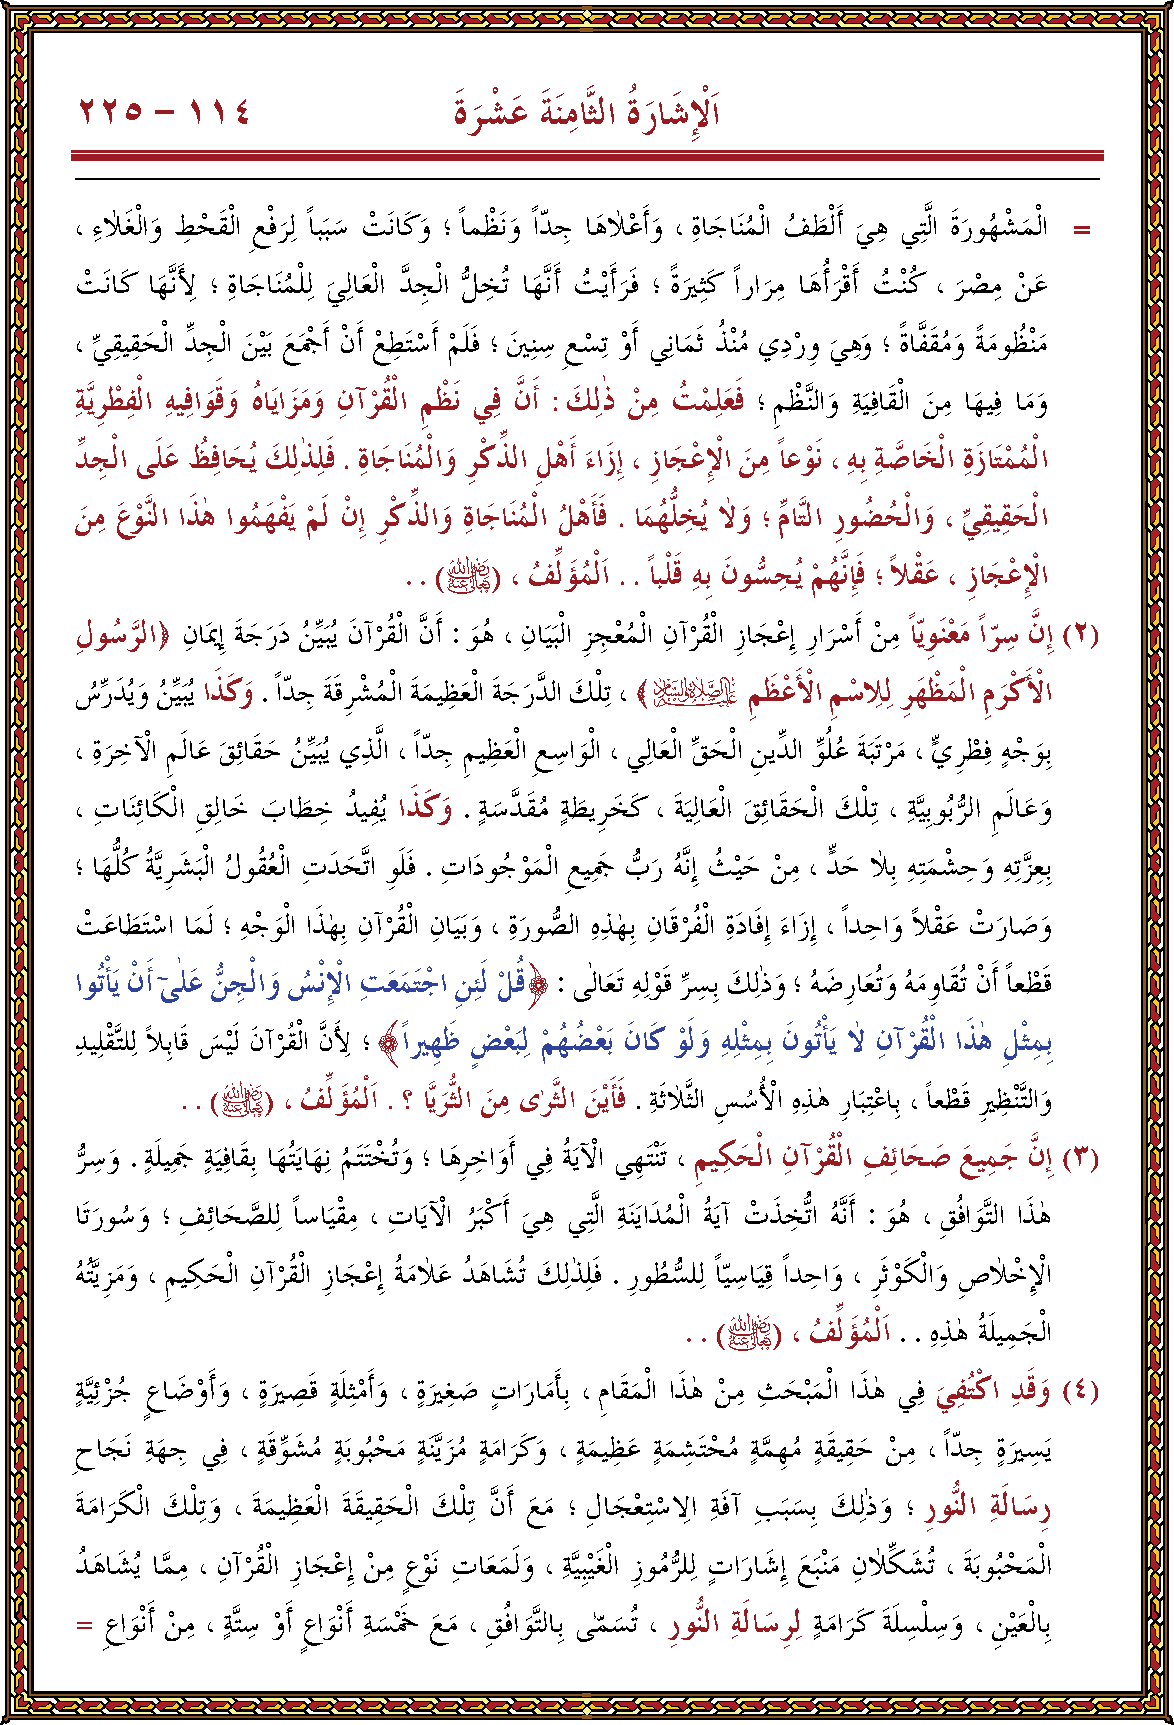 اَلْإِشَارَةُ الثَّامِنَةَ عَشْرَةَ ١١٤ – ٢٢٥
= الْمَشْهُورَةَ الَّتِي هِيَ أَلْطَفُ الْمُنَاجَاةِ ، وَأَعْلَاهَا جِدّاً وَنَظْماً ؛ وَكَانَتْ سَبَباً لِرَفْعِ الْقَحْطِ وَالْغَلَاءِ ،
عَنْ مِصْرَ ، كُنْتُ أَقْرَأُهَا مِرَاراً كَثِيرَةً ؛ فَرَأَيْتُ أَنَّهَا تُخِلُّ الْجِدَّ الْعَالِيَ لِلْمُنَاجَاةِ ؛ لِأَنَّهَا كَانَتْ
مَنْظُومَةً وَمُقَفَّاةً ؛ وَهِيَ وِرْدِي مُنْذُ ثَمَانِي أَوْ تِسْعِ سِنِينَ ؛ فَلَمْ أَسْتَطِعْ أَنْ أَجْمَعَ بَيْنَ الْجِدِّ الْحَقِيقِيِّ ،
وَمَا فِيهَا مِنَ الْقَافِيَةِ وَالنَّظْمِ ؛ فَعَلِمْتُ مِنْ ذٰلِكَ : أَنَّ فِي نَظْمِ الْقُرْآنِ وَمَزَايَاهُ وَقَوَافِيهِ الْفِطْرِيَّةِ
الْمُمْتَازَةِ الْخَاصَّةِ بِهِ ، نَوْعاً مِنَ الْإِعْجَازِ ، إِزَاءَ أَهْلِ الذِّكْرِ وَالْمُنَاجَاةِ . فَلِذٰلِكَ يُحَافِظُ عَلَى الْجِدِّ
الْحَقِيقِيِّ ، وَالْحُضُورِ التَّامِّ ؛ وَلَا يُخِلُّهُمَا . فَأَهْلُ الْمُنَاجَاةِ وَالذِّكْرِ إِنْ لَمْ يَفْهَمُوا هٰذَا النَّوْعَ مِنَ
الْإِعْجَازِ ، عَقْلاً ؛ فَإِنَّهُمْ يُحِسُّونَ بِهِ قَلْباً . . اَلْمُؤَلِّفُ ، (رَضِيَ اللّٰهُ تَعَالٰى عَنْهُ) . .
(٢) إِنَّ سِرّاً مَعْنَوِيّاً مِنْ أَسْرَارِ إِعْجَازِ الْقُرْآنِ الْمُعْجِزِ الْبَيَانِ ، هُوَ : أَنَّ الْقُرْآنَ يُبَيِّنُ دَرَجَةَ إِيمَانِ ﴿الرَّسُولِ
الْأَكْرَمِ الْمَظْهَرِ لِلِاسْمِ الْأَعْظَمِ عَلَيْهِ الصَّلَاةُ وَالسَّلَامُ﴾ ، تِلْكَ الدَّرَجَةَ الْعَظِيمَةَ الْمُشْرِقَةَ جِدّاً . وَكَذَا يُبَيِّنُ وَيُدَرِّسُ
بِوَجْهٍ فِطْرِيٍّ ، مَرْتَبَةَ عُلُوِّ الدِّينِ الْحَقِّ الْعَالِي ، الْوَاسِعِ الْعَظِيمِ جِدّاً ، الَّذِي يُبَيِّنُ حَقَائِقَ عَالَمِ الْآخِرَةِ ،
وَعَالَمِ الرُّبُوبِيَّةِ ، تِلْكَ الْحَقَائِقَ الْعَالِيَةَ ، كَخَرِيطَةٍ مُقَدَّسَةٍ . وَكَذَا يُفِيدُ خِطَابَ خَالِقِ الْكَائِنَاتِ ،
بِعِزَّتِهِ وَحِشْمَتِهِ بِلَا حَدٍّ ، مِنْ حَيْثُ إِنَّهُ رَبُّ جَمِيعِ الْمَوْجُودَاتِ . فَلَوِ اتَّحَدَتِ الْعُقُولُ الْبَشَرِيَّةُ كُلُّهَا ؛
وَصَارَتْ عَقْلاً وَاحِداً ، إِزَاءَ إِفَادَةِ الْفُرْقَانِ بِهٰذِهِ الصُّورَةِ ، وَبَيَانِ الْقُرْآنِ بِهٰذَا الْوَجْهِ ؛ لَمَا اسْتَطَاعَتْ
قَطْعاً أَنْ تُقَاوِمَهُ وَتُعَارِضَهُ ؛ وَذٰلِكَ بِسِرِّ قَوْلِهِ تَعَالٰى : ﴿قُلْ لَئِنِ اجْتَمَعَتِ الْإِنْسُ وَالْجِنُّ عَلٰىٓ أَنْ يَأْتُوا
بِمِثْلِ هٰذَا الْقُرْآنِ لَا يَأْتُونَ بِمِثْلِهِ وَلَوْ كَانَ بَعْضُهُمْ لِبَعْضٍ ظَهِيراً﴾ ؛ لِأَنَّ الْقُرْآنَ لَيْسَ قَابِلاً لِلتَّقْلِيدِ
وَالتَّنْظِيرِ قَطْعاً ، بِاعْتِبَارِ هٰذِهِ الْأُسُسِ الثَّلَاثَةِ . فَأَيْنَ الثَّرٰى مِنَ الثُّرَيَّا ؟ . اَلْمُؤَلِّفُ ، (رَضِيَ اللّٰهُ تَعَالٰى عَنْهُ) . .
(٣) إِنَّ جَمِيعَ صَحَائِفِ الْقُرْآنِ الْحَكِيمِ ، تَنْتَهِي الْآيَةُ فِي أَوَاخِرِهَا ؛ وَتُخْتَتَمُ نِهَايَاتُهَا بِقَافِيَةٍ جَمِيلَةٍ . وَسِرُّ
هٰذَا التَّوَافُقِ ، هُوَ : أَنَّهُ اتُّخِذَتْ آيَةُ الْمُدَايَنَةِ الَّتِي هِيَ أَكْبَرُ الْآيَاتِ ، مِقْيَاساً لِلصَّحَائِفِ ؛ وَسُورَتَا
الْإِخْلَاصِ وَالْكَوْثَرِ ، وَاحِداً قِيَاسِيّاً لِلسُّطُورِ . فَلِذٰلِكَ تُشَاهَدُ عَلَامَةُ إِعْجَازِ الْقُرْآنِ الْحَكِيمِ ، وَمَزِيَّتُهُ
الْجَمِيلَةُ هٰذِهِ . . اَلْمُؤَلِّفُ ، (رَضِيَ اللّٰهُ تَعَالٰى عَنْهُ) . .
(٤) وَقَدِ اكْتُفِيَ فِي هٰذَا الْمَبْحَثِ مِنْ هٰذَا الْمَقَامِ ، بِأَمَارَاتٍ صَغِيرَةٍ ، وَأَمْثِلَةٍ قَصِيرَةٍ ، وَأَوْضَاعٍ جُزْئِيَّةٍ
يَسِيرَةٍ جِدّاً ، مِنْ حَقِيقَةٍ مُهِمَّةٍ مُحْتَشِمَةٍ عَظِيمَةٍ ، وَكَرَامَةٍ مُزَيَّنَةٍ مَحْبُوبَةٍ مُشَوِّقَةٍ ، فِي جِهَةِ نَجَاحِ
رِسَالَةِ النُّورِ ؛ وَذٰلِكَ بِسَبَبِ آفَةِ الِاسْتِعْجَالِ ؛ مَعَ أَنَّ تِلْكَ الْحَقِيقَةَ الْعَظِيمَةَ ، وَتِلْكَ الْكَرَامَةَ
الْمَحْبُوبَةَ ، تُشَكِّلَانِ مَنْبَعَ إِشَارَاتٍ لِلرُّمُوزِ الْغَيْبِيَّةِ ، وَلَمَعَاتِ نَوْعٍ مِنْ إِعْجَازِ الْقُرْآنِ ، مِمَّا يُشَاهَدُ
بِالْعَيْنِ ، وَسِلْسِلَةَ كَرَامَةٍ لِرِسَالَةِ النُّورِ ، تُسَمّٰى بِالتَّوَافُقِ ، مَعَ خَمْسَةِ أَنْوَاعٍ أَوْ سِتَّةٍ ، مِنْ أَنْوَاعِ =